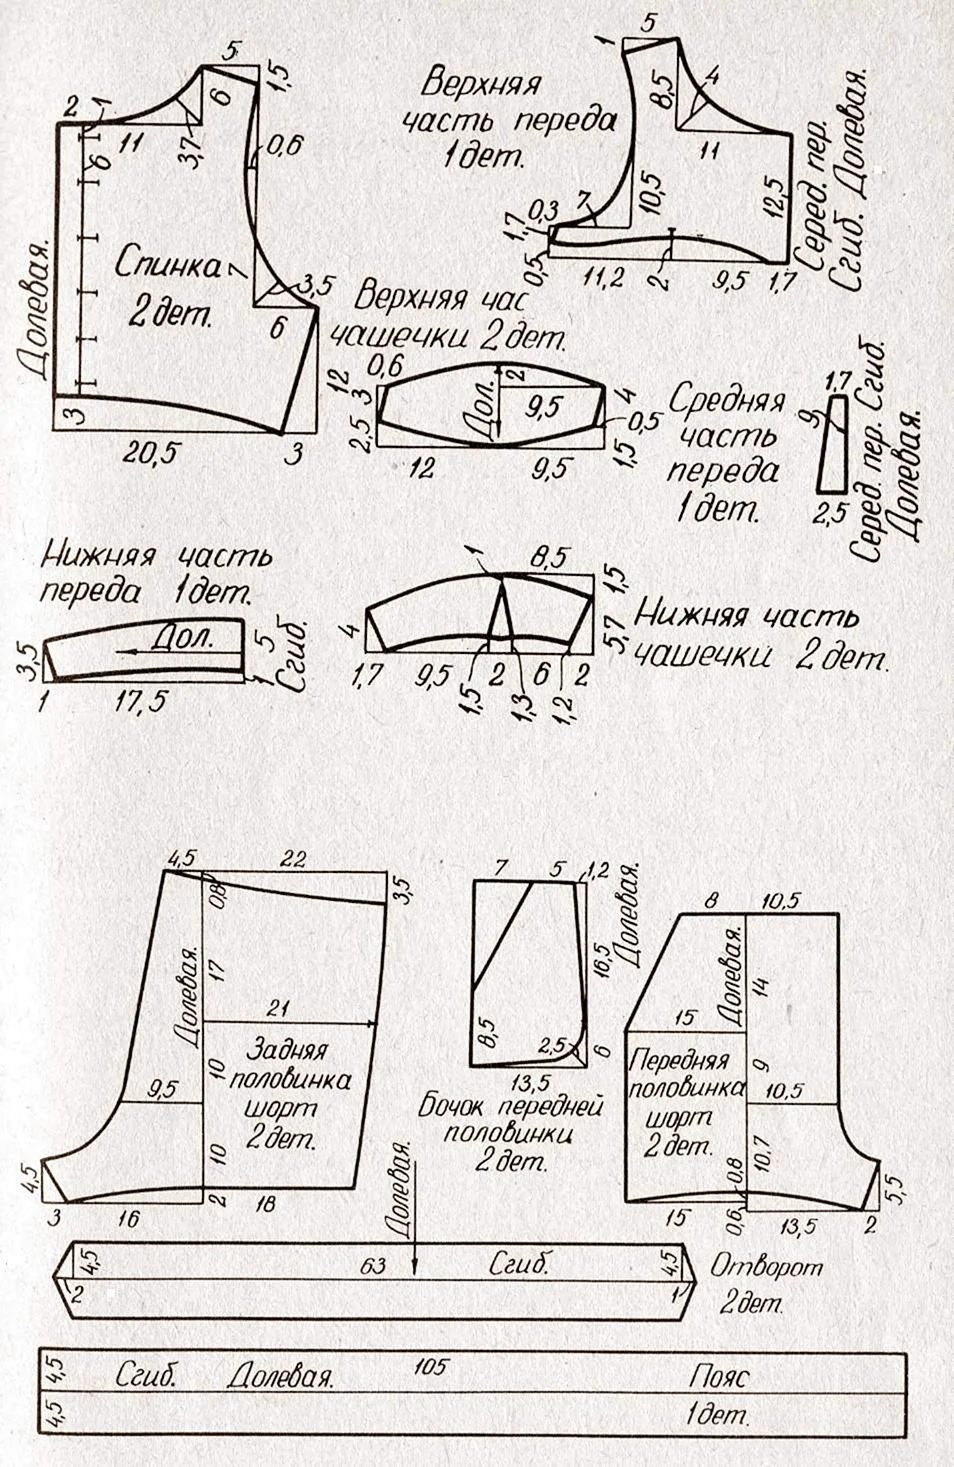 5
1,5
6
2
1
11
3,7
6
0,6
Долевая.
Спинка
2 дет.
7
3,5
6
3
20,5
3
5
1
Верхняя
часть переда
1 дет.
8,5
4
11
Серед. пер.
Сгиб. Долевая.
12,5
10,5
7
0,3
1,7
0,5
11,2
2
9,5
1,7
Верхняя час
чашечки 2 дет.
12
0,6
3
2,5
2
Дол.
9,5
4
0,5
1,5
12
9,5
Средняя
часть
переда
1 дет.
1,7
9
2,5
Серед. пер. Сгиб.
Долевая.
Нижняя часть
переда 1 дет.
3,5
Дол.
5
1
Сгиб.
1
17,5
1
8,5
1,5
4
5,7
1,7
9,5
1,5
2
1,3
6
1,2
2
Нижняя часть
чашечки 2 дет.
4,5
22
0,8
3,5
Долевая.
17
21
10
Задняя
половинка
шорт
2 дет.
9,5
10
4,5
3
16
2
18
7
5
1,2
Долевая.
16,5
8,5
2,5
6
13,5
Бочок передней
половинки
2 дет.
8
10,5
Долевая.
14
15
9
Передняя
половинка
шорт
2 дет.
10,5
10,7
0,8
5,5
15
0,6
13,5
2
Долевая.
4,5
63
Сгиб.
4,5
2
1
Отворот
2 дет.
4,5
Сгиб.
Долевая.
105
Пояс
4,5
1 дет.